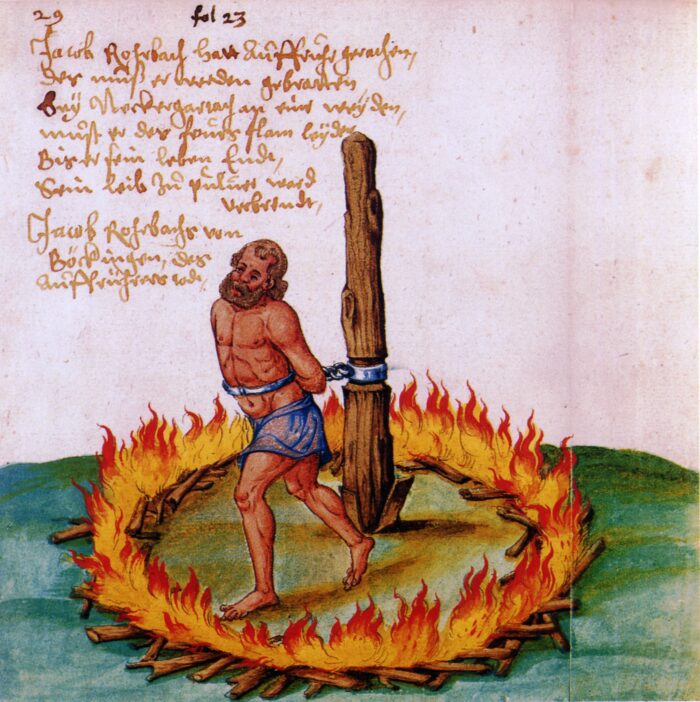 29 fol 23
Jacob Rohrbach hatt Auffruhr gemachen,
des must er werden gebratten
Bey Neckergartach an eine weyden,
must er des feurs flam leyden
Bis er sein leben Endt,
Sein leib zu puluer ward
verbrendt,
Jacob Rohrbachs von
Böckingen, des
Auffrührers todt,